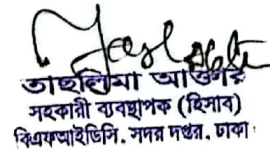 তাছলিমা আক্তার
সহকারী ব্যবস্থাপক (হিসাব)
বিএফআইডিসি, সদর দপ্তর, ঢাকা।